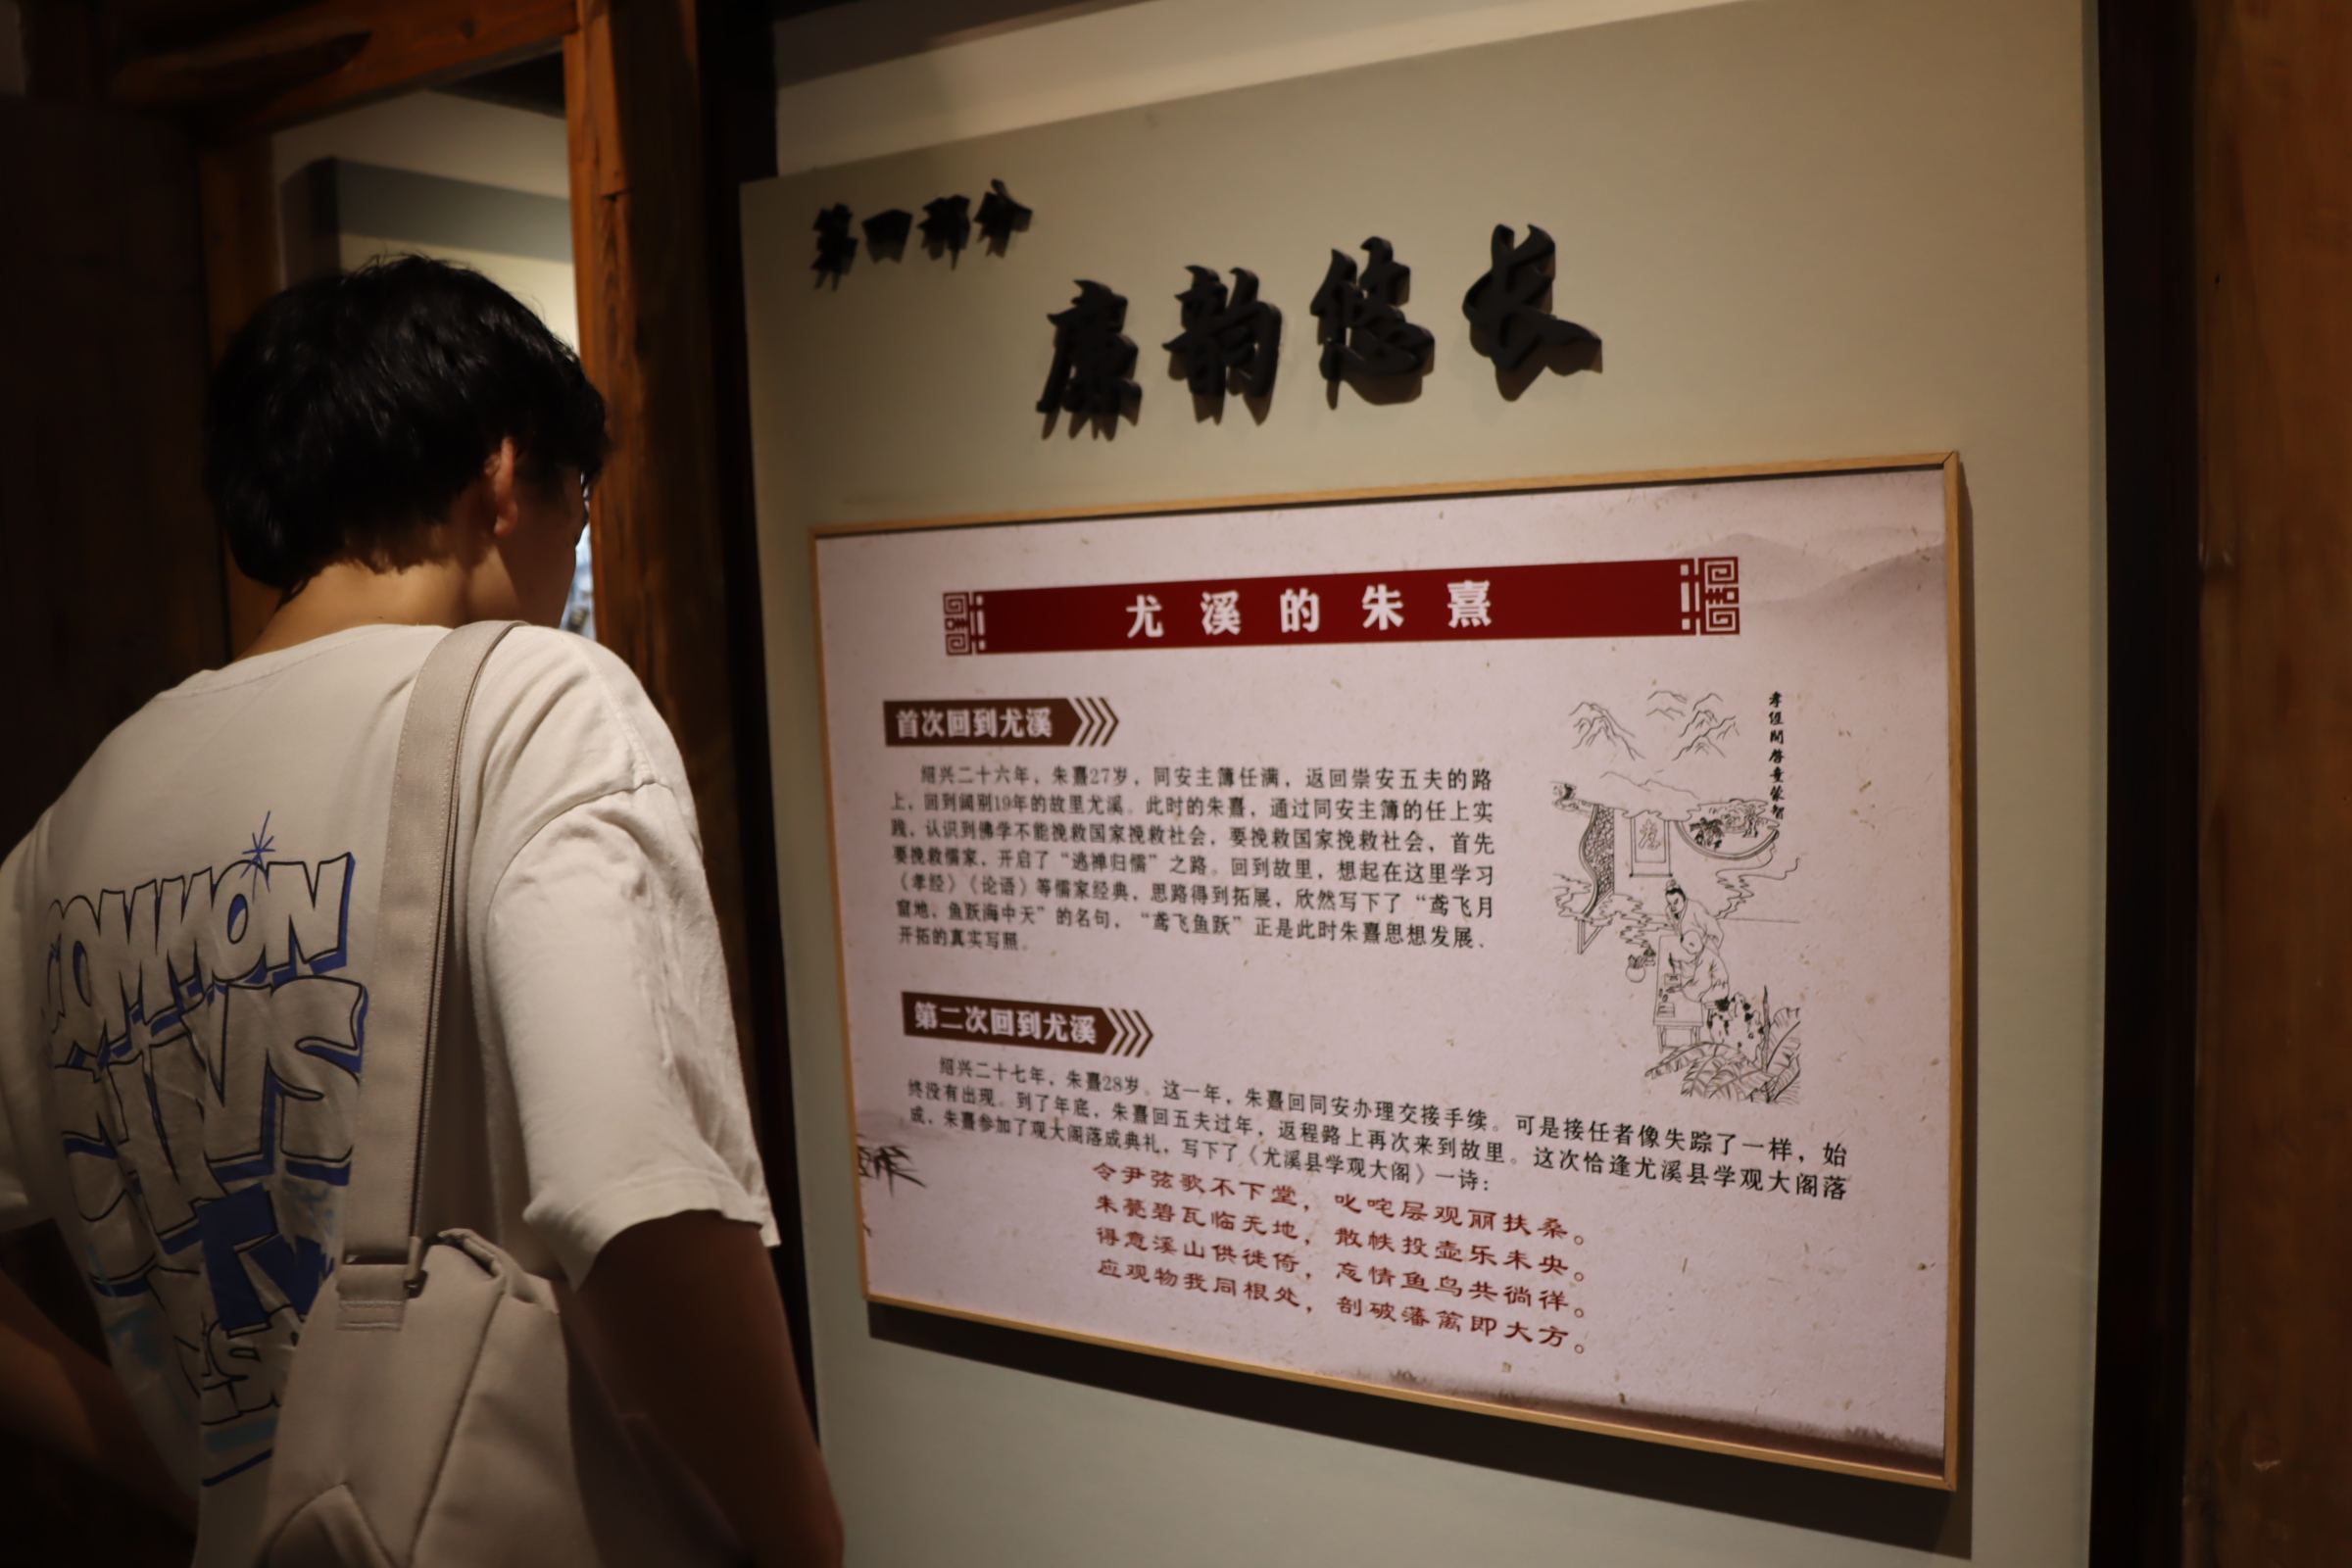 第四部分
廉韵悠长
尤溪的朱熹
首次回到尤溪
绍兴二十六年，朱熹27岁，同安主簿任满，返回崇安五夫的路
上，回到阔别19年的故里尤溪。此时的朱熹，通过同安主簿的任上实
践，认识到佛学不能挽救国家挽救社会，要挽救国家挽救社会，首先
要挽救儒家，开启了“逃禅归儒”之路。回到故里，想起在这里学习
《孝经》《论语》等儒家经典，思路得到拓展，欣然写下了“鸢飞月
窟地，鱼跃海中天”的名句，“鸢飞鱼跃”正是此时朱熹思想发展、
开拓的真实写照。
孝经开启童蒙智
第二次回到尤溪
绍兴二十七年，朱熹28岁。这一年，朱熹回同安办理交接手续。可是接任者像失踪了一样，始
终没有出现。到了年底，朱熹回五夫过年，返程路上再次来到故里。这次恰逢尤溪县学观大阁落
成，朱熹参加了观大阁落成典礼，写下了《尤溪县学观大阁》一诗：
令尹弦歌不下堂，叱咤层观丽扶桑。
朱甍碧瓦临无地，散帙投壶乐未央。
得意溪山供徙倚，忘情鱼鸟共徜徉。
应观物我同根处，剖破藩篱即大方。
COMMON